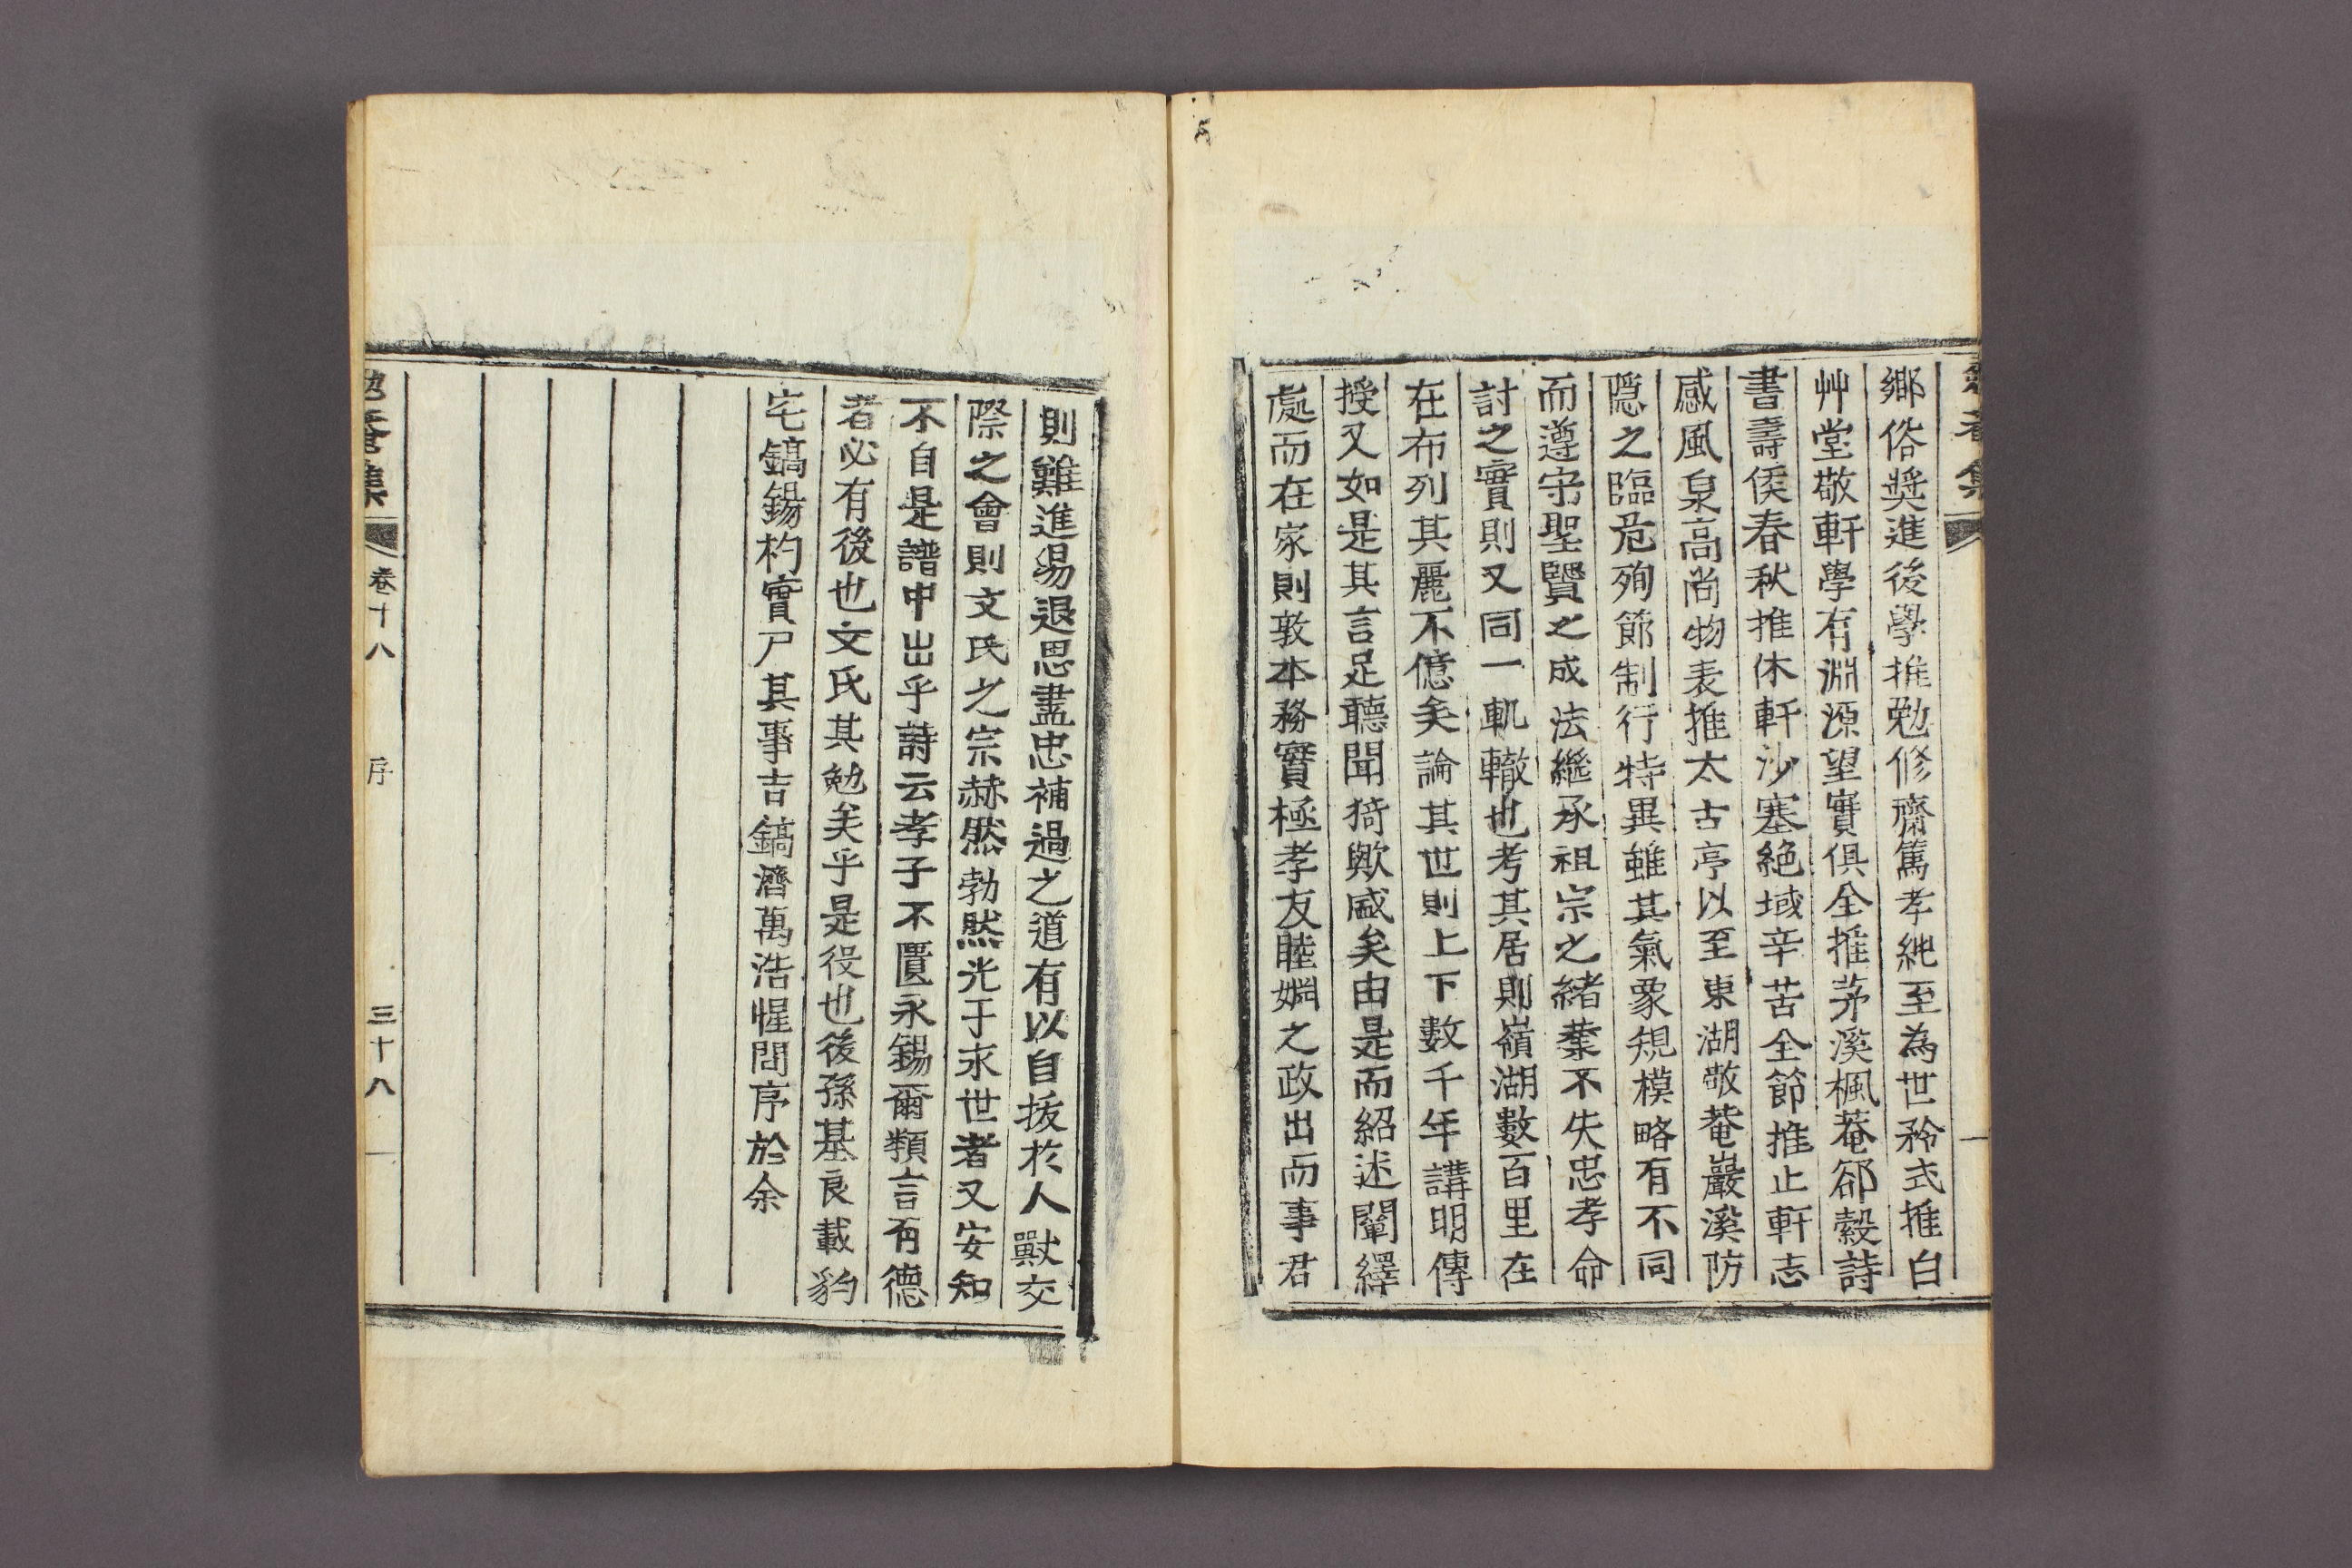 鄉俗奬進後學推勉修齋篤孝純至為世矜式推白
艸堂敬軒學有淵源望實俱全推茅溪楓菴郤縠詩
書壽俟春秋推休軒沙塞絶域辛苦全節推止軒志
感風泉高尚物表推太古亭以至東湖敬菴巖溪防
隱之臨危殉節制行特異雖其氣象䂓模略有不同
而遵守聖賢之成法繼承祖宗之緒業不失忠孝命
討之實則又同一軌轍也考其居則嶺湖數百里在
在布列其麗不億矣論其世則上下數千年講明傳
授又如是其言足聽聞猗歟盛矣由是而紹述闡繹
處而在家則敦本務實極孝友睦婣之政出而事君
則難進易退思盡忠補過之道有以自拔於人獸交
際之會則文氏之宗赫然勃然光于永世者又安知
不自是譜中出乎詩云孝子不匱永錫爾類言有德
者必有後也文氏其勉矣乎是役也後孫基良載豹
宅鎬錫杓實尸其事吉鎬濟萬浩惺問序於余
勉菴集 卷十八 序 三十八